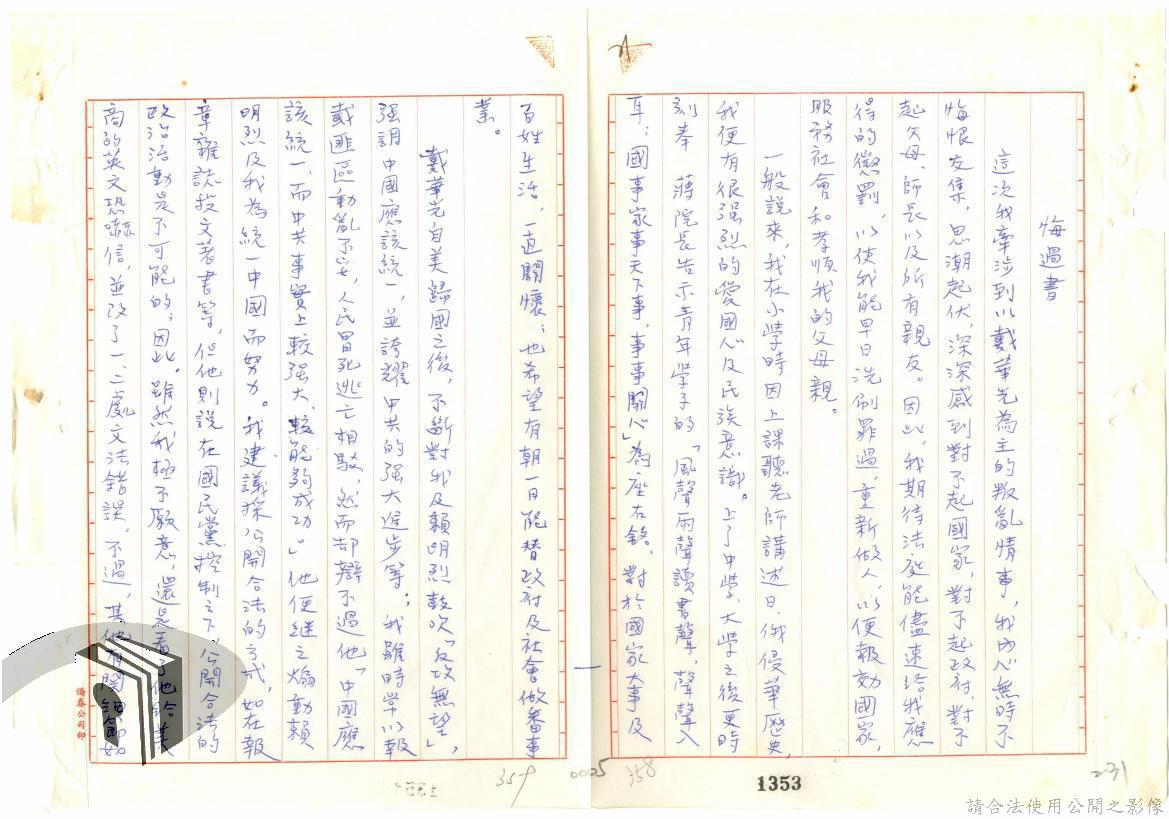 悔過書
這次我牽涉到以戴華光為主的叛亂情事，我內心無時不
悔恨交集，思潮起伏，深深感到對不起國家，對不起政府，對不
起父母、師長以及所有親友。因此，我期待法庭能儘速給我應
得的懲罰，以使我能早日洗刷罪過，重新做人，以便報効國家，
服務社會和孝順我的父母親。
一般說來，我在小學時因上課聽老師講述日、俄侵華歷史，
我便有很強烈的愛國心及民族意識。上了中學、大學之後更時
刻奉 蔣院長告示青年學子的「風聲雨聲讀書聲，聲聲入
耳；國事家事天下事，事事關心」為座右銘。對於國家大事及
百姓生活，一直關懷；也希望有朝一日能替政府及社會做番事
業。
戴華光自美歸國之後，不斷對我及賴明烈鼓吹「反攻無望」，
強調中國應該統一，並誇耀中共的強大進步等；我雖時常以報
載匪區動亂不安，人民冒死逃亡相駁，然而却辯不過他「中國應
該統一，而中共事實上較強大、較能夠成功」。他便繼之煽動賴
明烈及我為統一中國而努力。我建議採公開合法的方式，如在報
章雜誌投文著書等，但他則說在國民黨控制之下，公開合法的
政治活動是不可能的；因此。雖然我極不願意，還是看了他給美
商的英文恐嚇信，並改了一、二處文法錯誤，不過，其他有關細節如
僑泰公司印
359
0005
358
1353
231
請合法使用公開之影像